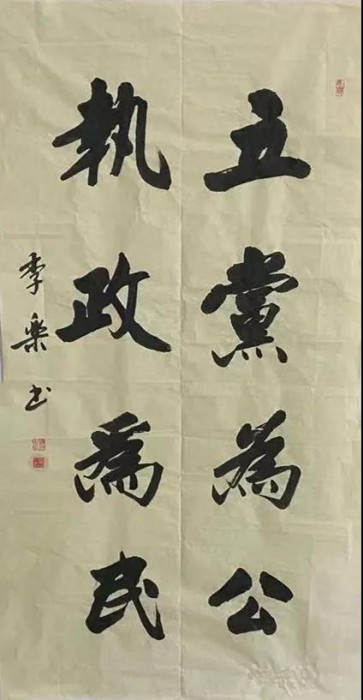 立黨為公
執政爲民
李樂书